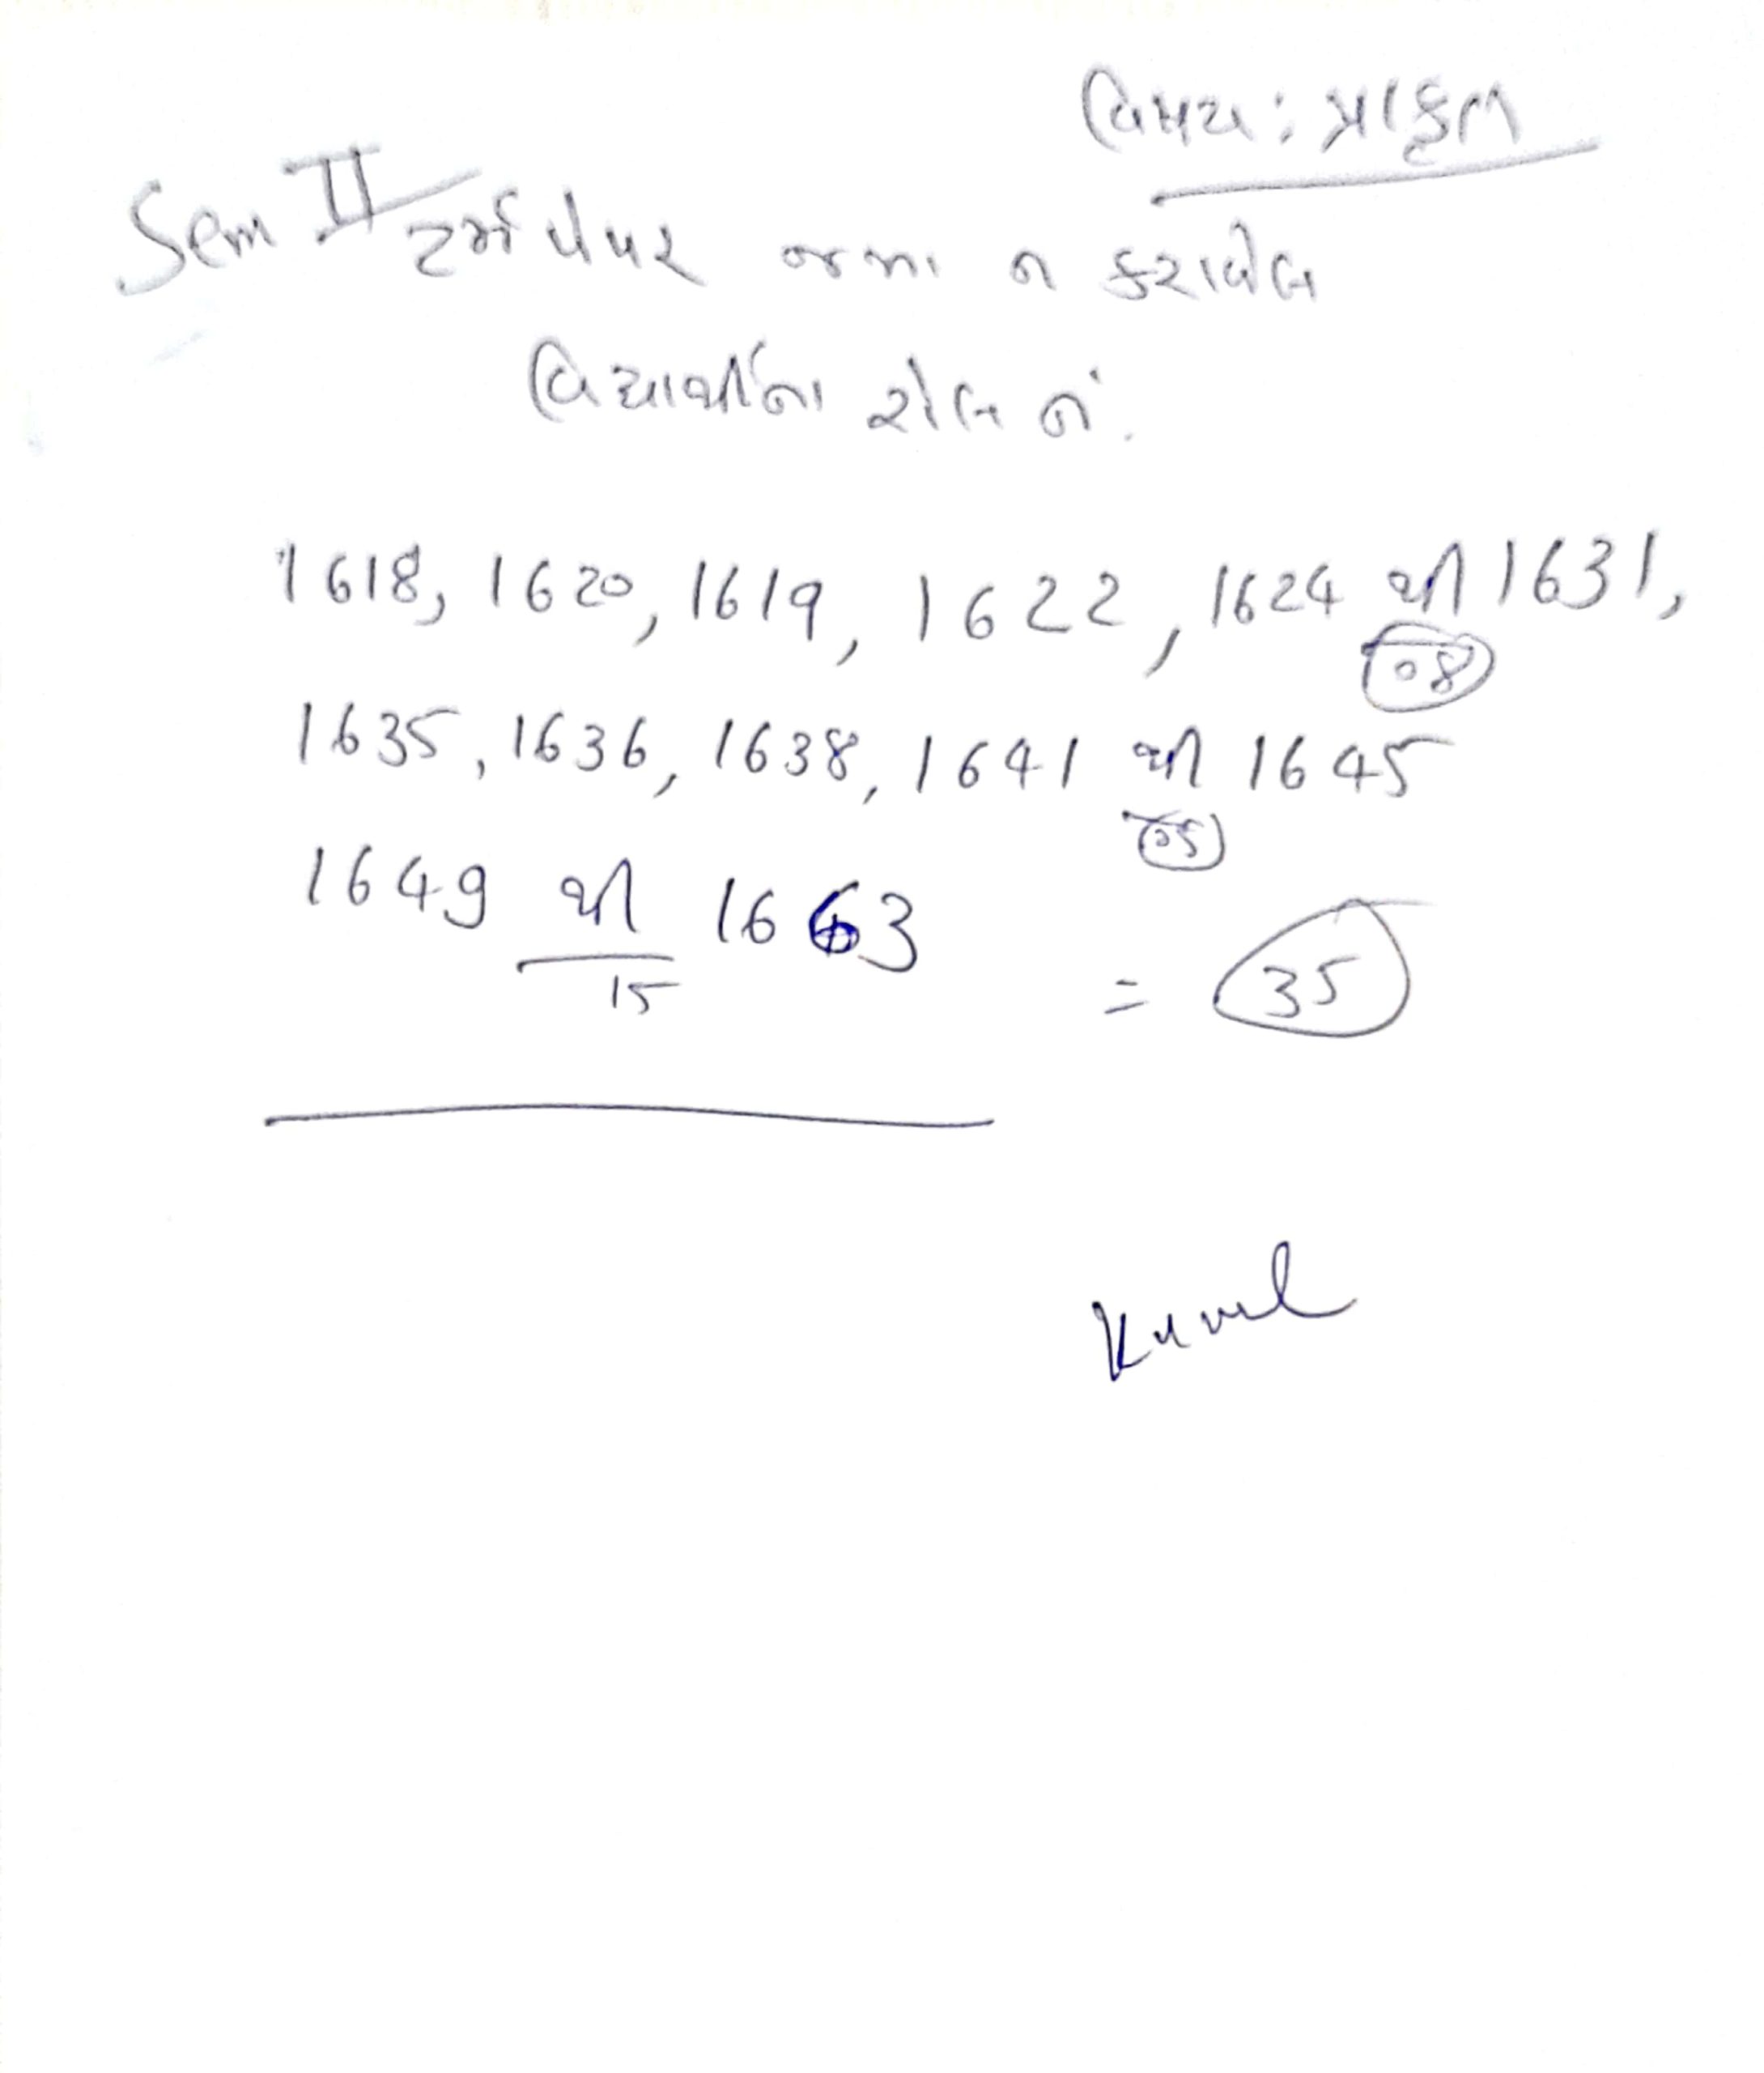 વિષય : પ્રાકૃત
Sem II ટર્મ પેપર જમા ન કરાવેલ
વિદ્યાર્થીના રોલ નં.
1618, 1620, 1619, 1622, 1624 થી 1631,
08
1635, 1636, 1638, 1641 થી 1645
05
1649 થી 1663
15
= 35